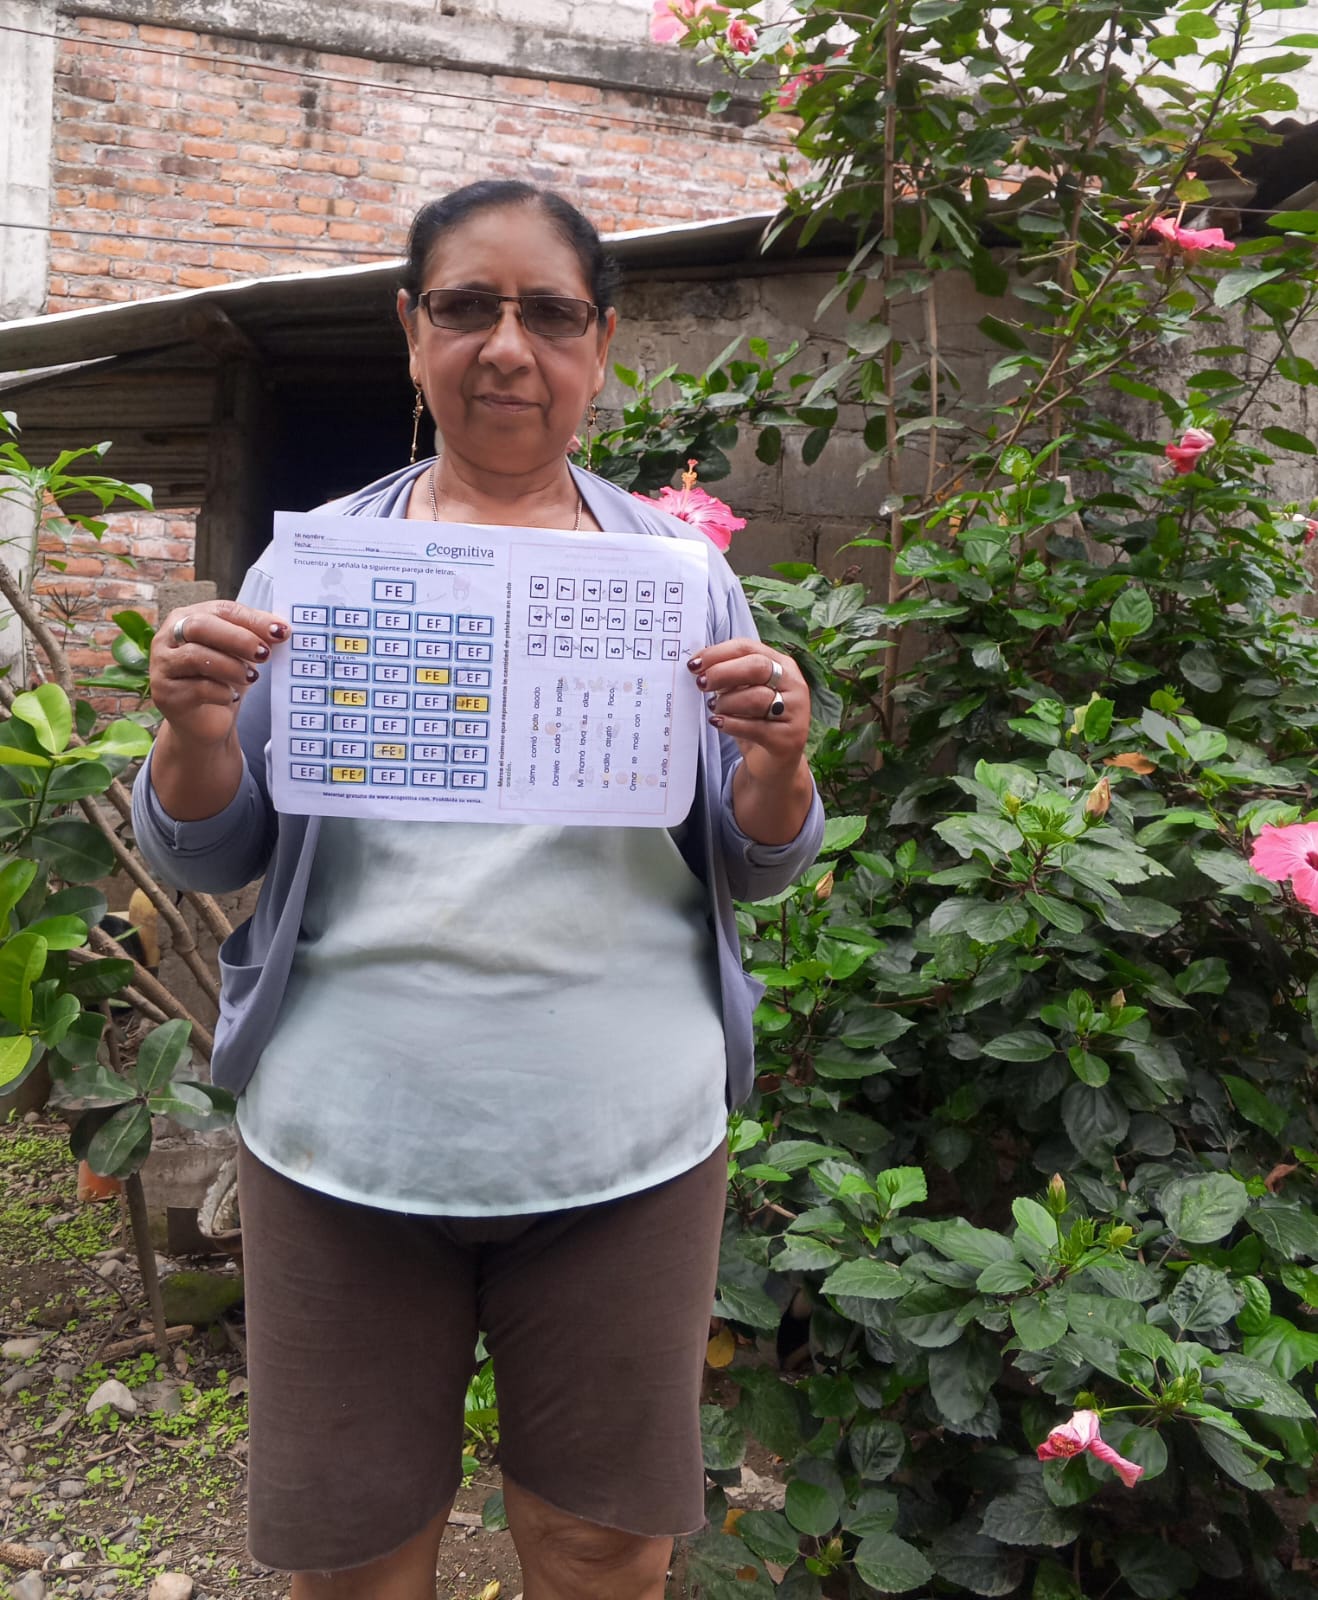 Mi nombre:
Fecha: Hora
ecognitiva
Encuentra y señala la siguiente pareja de letras:
FE
EF EF EF EF EF
EF FE EF EF EF
ecognitiva.com
EF EF EF FE EF
EF FE EF EF FE
EF EF EF EF EF
EF EF FE EF EF
EF FE EF EF EF
Material gratuito de www.ecognitiva.com. Prohibida su venta.
Marca el número que representa la cantidad de palabras en cada
oración.
Jaime comió pollo asado. 3 4 6
Daniela cuida a los pollitos. 5 6 7
Mi mamá lava sus ollas 2 5 4
La ardilla asustó a Paco. 5 3 6
Omar se mojó con la lluvia. 7 6 5
El anillo es de Susana. 5 3 6